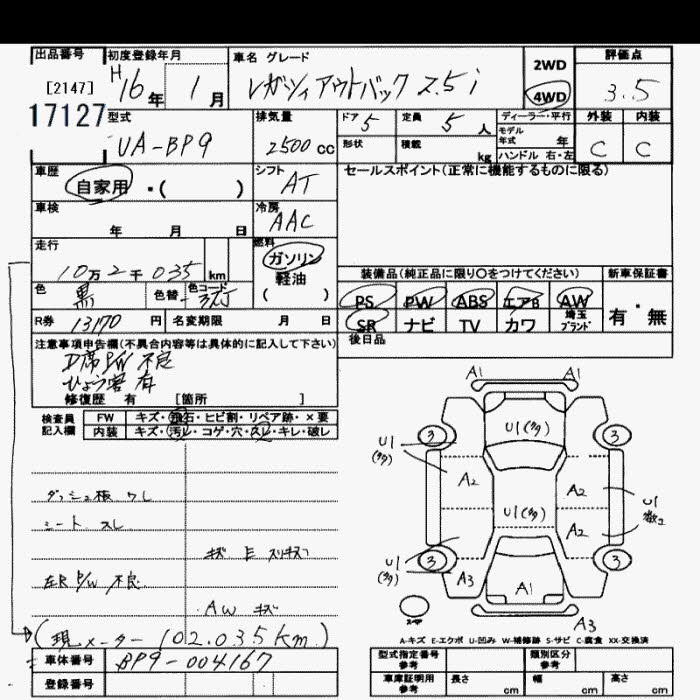 出品番号 初度登録年月 車名 グレード 評価点
[2147] H16年 1月 レガシィアウトバック 2.5i 2WD 4WD 3.5
17127 型式 排気量 ドア 5 定員 5人 ディーラー・平行 外装 内装
UA-BP9 2500cc 形状 積載 kg モデル年式 年 ハンドル 右・左 C C
車歴 シフト セールスポイント(正常に機能するものに限る)
自家用・( ) AT
車検 冷房
年 月 日 AAC
走行 燃料
10万2千035 km ガソリン 軽油 ( ) 装備品(純正品に限り○をつけてください) 新車保証書
色 黒 色替 色コード PS PW ABS エアB AW 有・無
R券 13170円 名変期限 月 日 SR ナビ TV カワ 埼玉ブランド
注意事項申告欄(不具合内容等は具体的に記入して下さい) 後日品
D席P/W 不良
ひょう害 有
修復歴 有 [箇所 ]
検査員記入欄 FW キズ・飛石・ヒビ割・リペア跡・×要
内装 キズ・汚レ・コゲ・穴・スレ・キレ・破レ
A1 A1
3 U1(多) 3
U1(多)
A2 A2 U1
ダッシュ板 ワレ
シート スレ U1(多) A2
キズ E
U1(多) 3 3
左R P/W 不良 A3 A1
AW キズ
A3
(現メーター 102.035km)
A-キズ E-エクボ U-凹み W-補修跡 S-サビ C-腐食 XX-交換済
車体番号 BP9-004167 型式指定番号 参考 類別区分 参考
登録番号 車庫証明用 参考 長さ cm 幅 cm 高さ cm